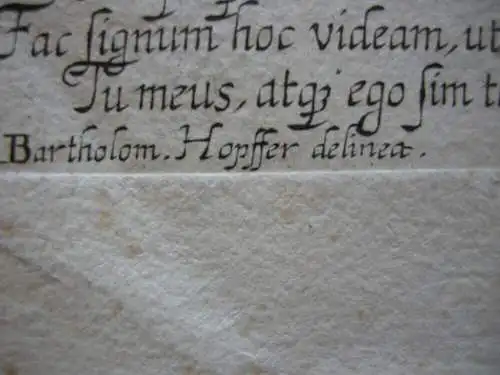 Fac signum hoc videam, ut
Tu meus, atqꝫ ego sim t
Bartholom. Hopffer delineat.